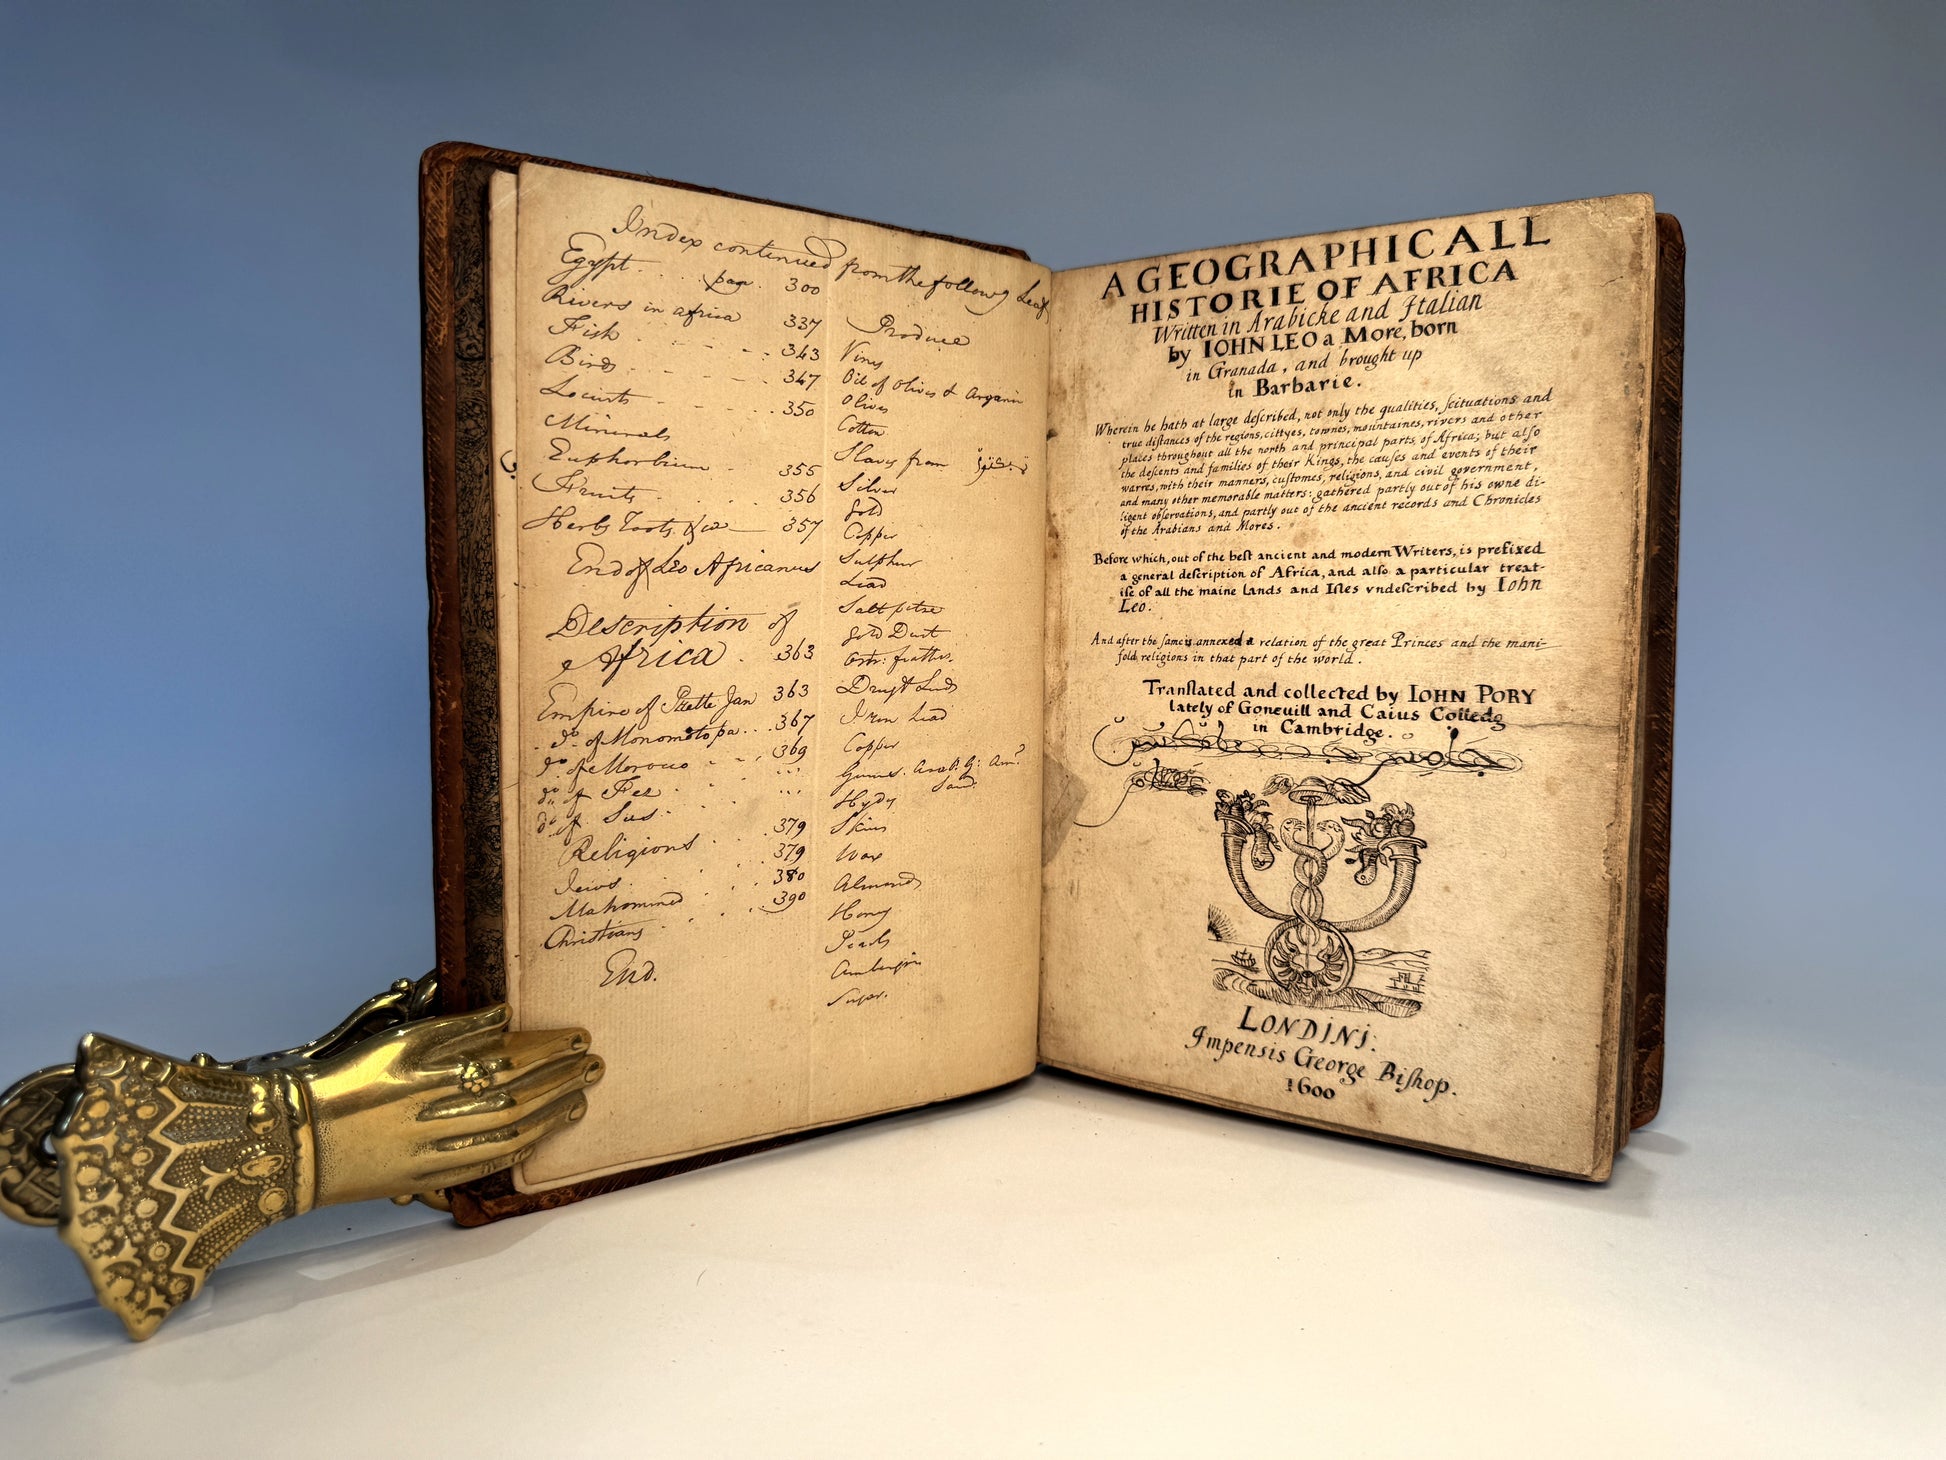 Index continued from the followg Leaf
Egypt . . . pag. 300
Rivers in africa 337
Fish . . . 343
Birds . . . 347
Locusts . . . 350
Minerals
Euphorbium . 355
Fruits . . . 356
Herbs Roots &ca 357
End of Leo Africanus
Description of
Africa . 363
Empire of Prette Jan 363
do. of Monomotopa . . 367
do. of Morocco . . . 369
do. of Fez . . . . . .
do. of Sus . . . . . .
Religions . . . 379
Jews . . . 379
Mahomined . . . 380
Christians . . . 390
End.
Produce
Vines
Oil of Olives & Arganin
Olives
Cotton
Slaves from
Silver
Gold
Copper
Sulphur
Lead
Salt petre
Gold Dust
Ostr: feathrs.
Iron Lead
Copper
Gums. Arab. G: Am:
Sand.
Hyds
Skins
Wax
Almonds
Honey
Pearls
Ambergris
Sugar.
A GEOGRAPHICALL
HISTORIE OF AFRICA
Written in Arabicke and Italian
by IOHN LEO a More, born
in Granada, and brought up
in Barbarie.
Wherein he hath at large deſcribed, not only the qualities, ſcituations and
true diſtances of the regions, cittyes, townes, mountaines, rivers and other
places throughout all the north and principal parts of Africa; but alſo
the deſcents and families of their Kings, the cauſes and events of their
warres, with their manners, cuſtomes, religions, and civil government,
and many other memorable matters: gathered partly out of his owne di-
ligent obſervations, and partly out of the ancient records and Chronicles
of the Arabians and Mores.
Before which, out of the beſt ancient and modern Writers, is prefixed
a general deſcription of Africa, and alſo a particular treat-
iſe of all the maine lands and Iſles vndeſcribed by Iohn
Leo.
And after the ſame is annexed a relation of the great Princes and the mani-
fold religions in that part of the world.
Tranſlated and collected by IOHN PORY
lately of Goneuill and Caius Colledg
in Cambridge.
LONDINI.
Impensis George Biſhop.
1600